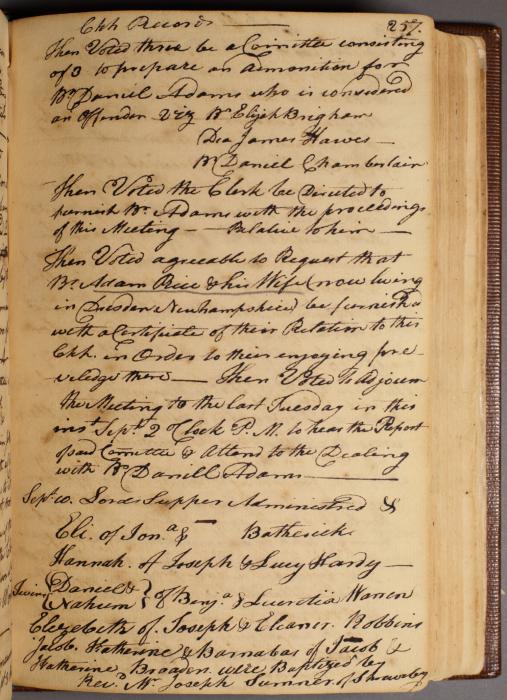 Chh Records 257.
Then Voted three be a Comittee consisting
of 3 to prepare an admonition for
Br. Daniel Adams who is considered
an offender Viz Br Elijah Brigham
Dea James Hawes
Br Daniel Chamberlain
Then Voted the Clerk be Directed to
furnish Br. Adams with the proceedings
of this Meeting — Relative to him —
Then Voted agreeable to Request that
Br. Adam Rice & his Wife (now living
in Dresden Newhampshire) be furnishd
with a Certificate of their Relation to this
Chh. in Order to their enjoying pre-
veledge there — Then Voted to adjourn
the Meeting to the last Tuesday in this
inst Sept. 2 oClock P.M. to hear the Report
of said Comittee & Attend to the Dealing
with Br Daniell Adams
Sept. 10. Lords Supper Administred &
Eli. of Jon.a & — Batherick
Hannah. of Joseph & Lucy Hardy —
Daniel &
Nahum } of Benj.a & Lucretia Warren
Elizebeth of Joseph & Eleaner. Robbins
Jacob. Katherine & Barnabas of Jacob &
Katherine Broaders. were Baptized by
Revd. Mr. Joseph Sumner. of Shrewsby